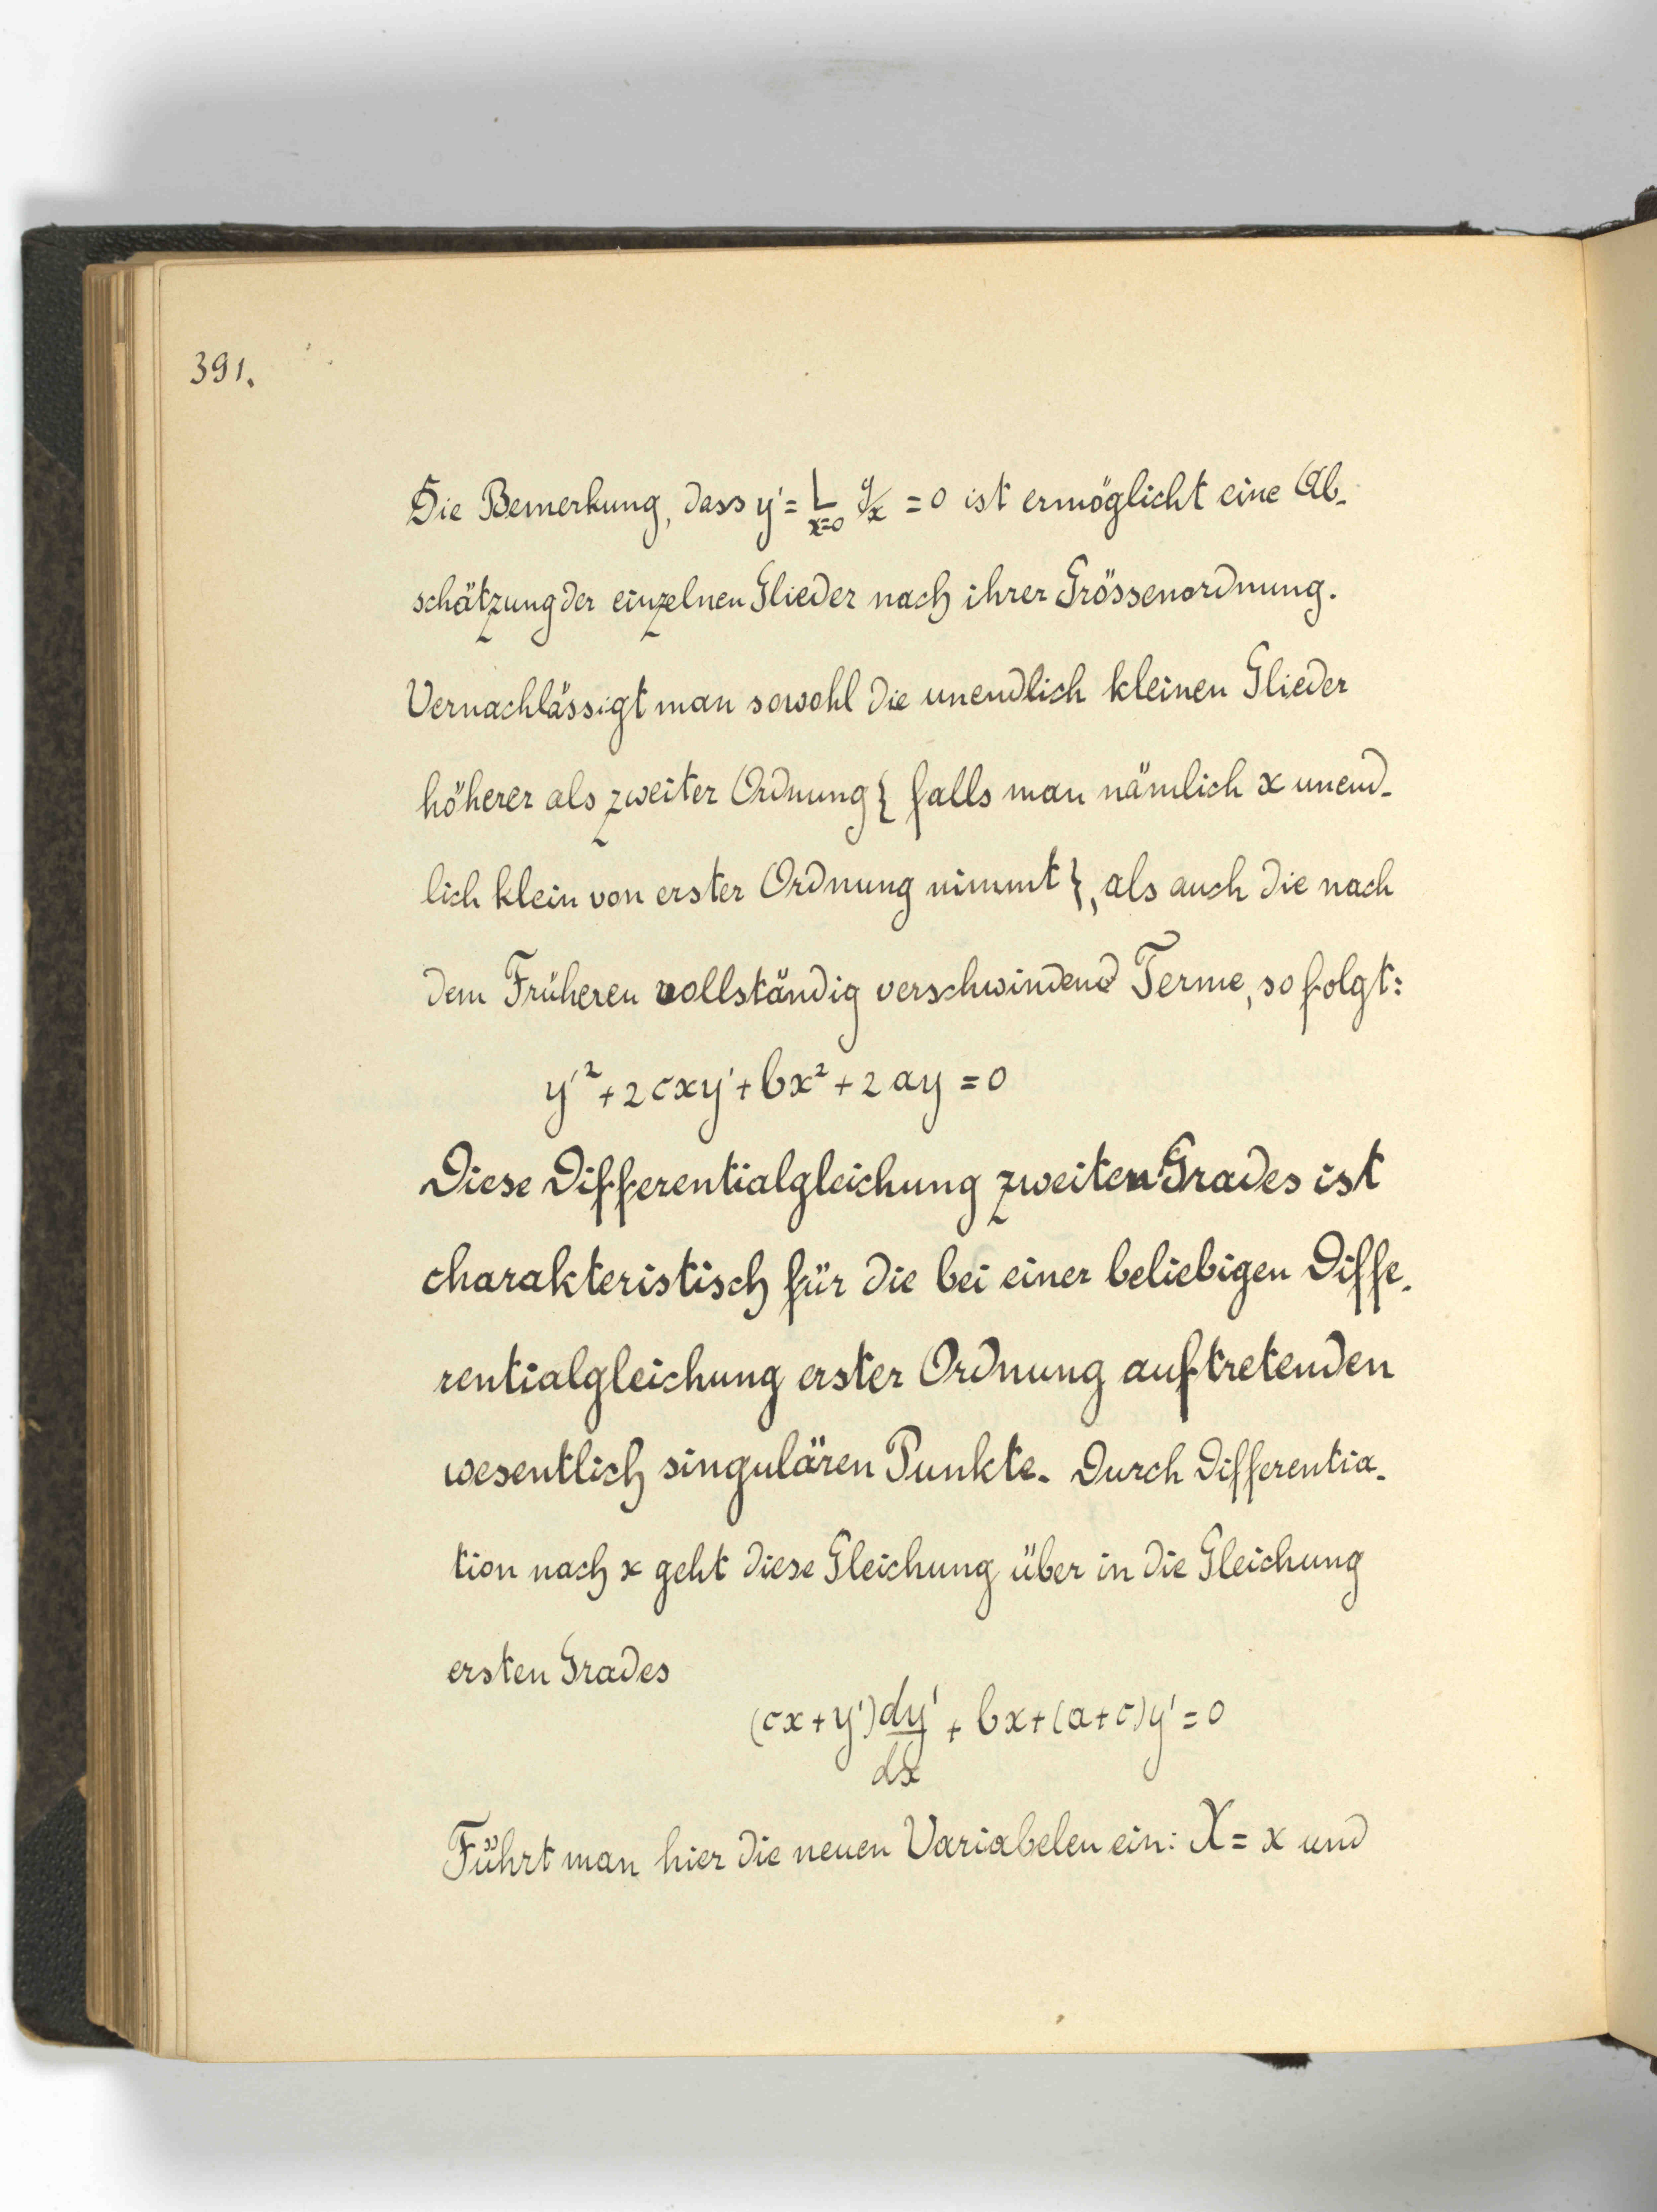 391.
Die Bemerkung, dass y' = L_{x=0} y/x = 0 ist ermöglicht eine Ab-
schätzung der einzelnen Glieder nach ihrer Grössenordnung.
Vernachlässigt man sowohl die unendlich kleinen Glieder
höherer als zweiter Ordnung { falls man nämlich x unend-
lich klein von erster Ordnung nimmt }, als auch die nach
dem Früheren vollständig verschwindend Terme, so folgt:
y'² + 2cxy' + bx² + 2ay = 0
Diese Differentialgleichung zweiten Grades ist
charakteristisch für die bei einer beliebigen Diffe-
rentialgleichung erster Ordnung auftretenden
wesentlich singulären Punkte. Durch Differentia-
tion nach x geht diese Gleichung über in die Gleichung
ersten Grades
(cx + y') dy'/dx + bx + (a + c)y' = 0
Führt man hier die neuen Variabelen ein: X = x und